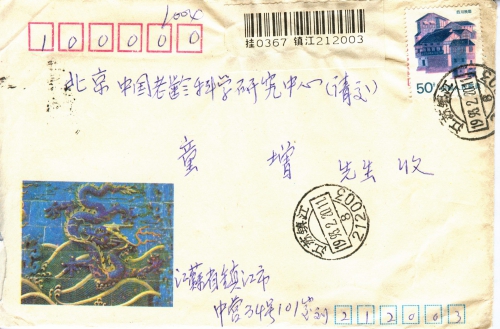 100000
挂0367 镇江212003
50分
北京中国老龄科学研究中心(请交)
童增 先生 收
江苏镇江
1998.2.20.11
8
212003
江苏省镇江市
中营34号101室
212003